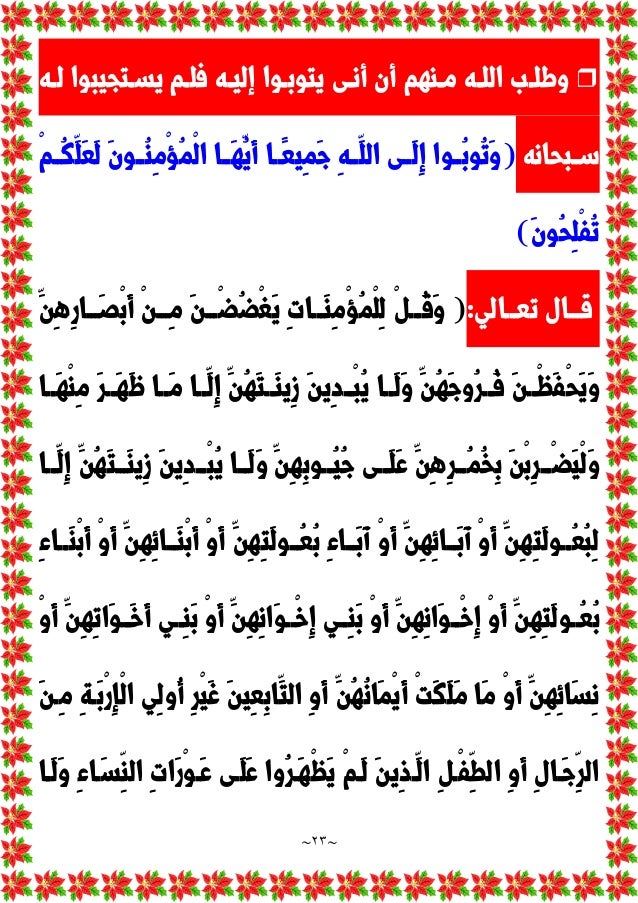 ❒ وطلب الله منهم أن أنى يتوبوا إليه فلم يستجيبوا له
سبحانه (وَتُوبُوا إِلَى اللَّهِ جَمِيعًا أَيُّهَا الْمُؤْمِنُونَ لَعَلَّكُمْ
تُفْلِحُونَ)
قال تعالي:( وَقُلْ لِلْمُؤْمِنَاتِ يَغْضُضْنَ مِنْ أَبْصَارِهِنَّ
وَيَحْفَظْنَ فُرُوجَهُنَّ وَلَا يُبْدِينَ زِينَتَهُنَّ إِلَّا مَا ظَهَرَ مِنْهَا
وَلْيَضْرِبْنَ بِخُمُرِهِنَّ عَلَى جُيُوبِهِنَّ وَلَا يُبْدِينَ زِينَتَهُنَّ إِلَّا
لِبُعُولَتِهِنَّ أَوْ آبَائِهِنَّ أَوْ آبَاءِ بُعُولَتِهِنَّ أَوْ أَبْنَائِهِنَّ أَوْ أَبْنَاءِ
بُعُولَتِهِنَّ أَوْ إِخْوَانِهِنَّ أَوْ بَنِي إِخْوَانِهِنَّ أَوْ بَنِي أَخَوَاتِهِنَّ أَوْ
نِسَائِهِنَّ أَوْ مَا مَلَكَتْ أَيْمَانُهُنَّ أَوِ التَّابِعِينَ غَيْرِ أُولِي الْإِرْبَةِ مِنَ
الرِّجَالِ أَوِ الطِّفْلِ الَّذِينَ لَمْ يَظْهَرُوا عَلَى عَوْرَاتِ النِّسَاءِ وَلَا
~٢٣~